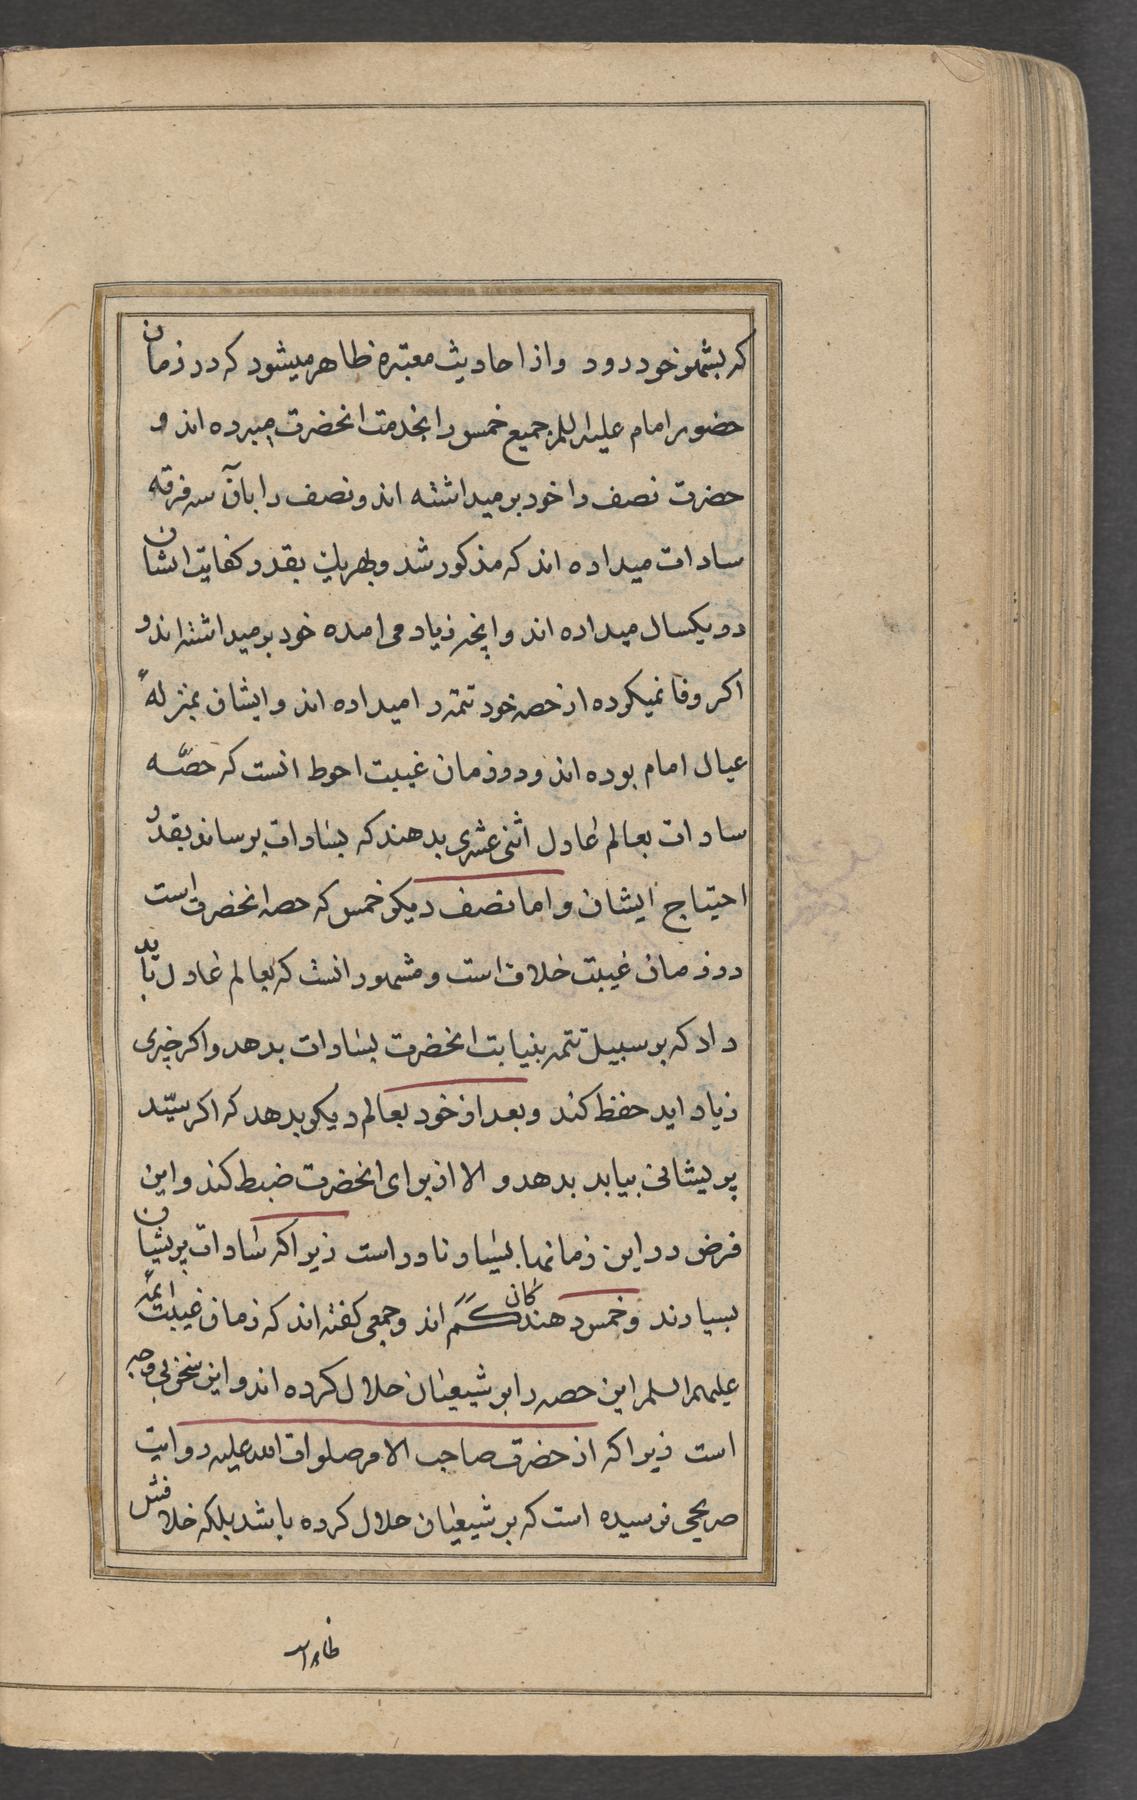 که بشهر خود رود و از احادیث معتبره ظاهر میشود که در زمان
حضور امام علیه السلم جمیع خمس را بخدمت انحضرت میبرده اند و
حضرت نصف را خود بر میداشته اند و نصف را بآن سه فرقه
سادات میداده اند که مذکور شد و بهر یک بقدر کفایت ایشان
در یکسال میداده اند و انچه زیاد می امده خود بر میداشته اند و
اکر وفا نمیکرده از حصه خود تتمه را میداده اند و ایشان بمنزلهٔ
عیال امام بوده اند و در زمان غیبت احوط انست که حصّه
سادات بعالم عادل اثنی عشری بدهند که بسادات برساند بقدر
احتیاج ایشان و اما نصف دیکر خمس که حصه انحضرت است
در زمان غیبت خلاف است و مشهور انست که بعالم عادل باید
داد که بر سبیل تتمه بنیابت انحضرت بسادات بدهد و اکر چیزی
زیاد اید حفظ کند و بعد از خود بعالم دیکر بدهد که اکر سیّد
پریشانی بیابد بدهد و الا از برای انحضرت ضبط کند و این
فرض در این زمانها بسیار نادر است زیرا که سادات پریشان
بسیارند و خمس دهندکان کم اند و جمعی کفته اند که زمان غیبت ائمهٔ
علیهم السلم این حصه را بر شیعیان حلال کرده اند و این سخن بی وجه
است زیرا که از حضرت صاحب الامر صلوات الله علیه روایت
صریحی نرسیده است که بر شیعیان حلال کرده باشد بلکه خلافش
ظاهر است